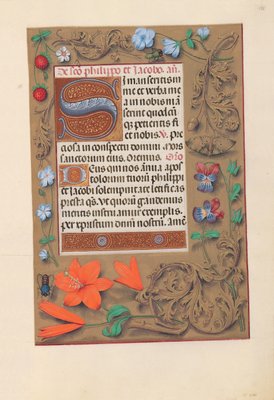 De sco philippo et Jacobo. añ.
Si manseritis in
me et verba me
a in nobis mã
serint quodcũ
q̃z petieritis fi
et nobis. V. Pre
ciosa in conspectu domini. Mors
sanctorum eius. Oremus. Oro
Deus qui nos ãnua apos
tolorum tuorũ philippi
et Jacobi solemnitate letificas
presta q̃s. Vt quorũ gaudemus
meritis instruamur exemplis.
Per xpristum dnm nostrũ. Amẽ